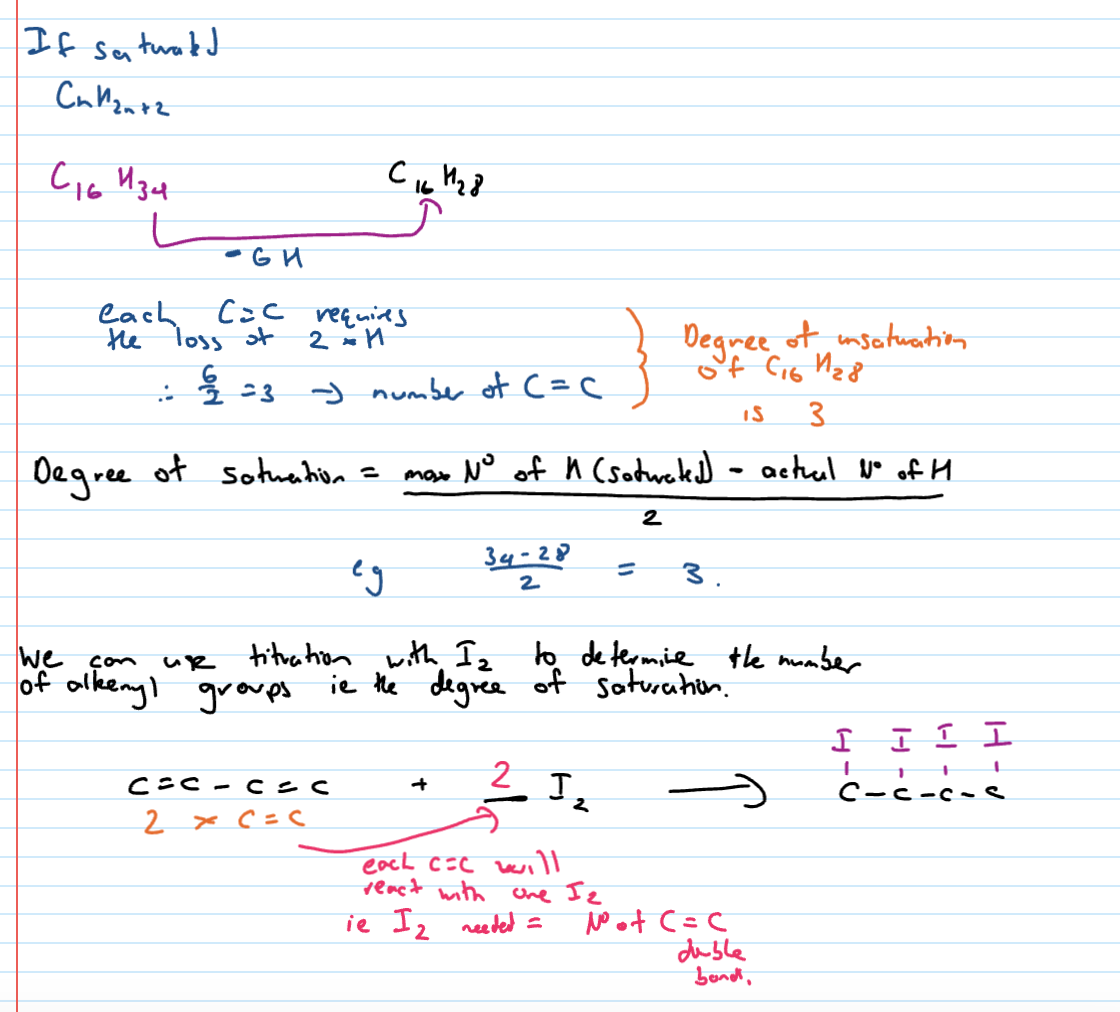 If saturated
CnH2n+2
C16 H34
C16 H28
- 6 H
each C=C requires
the loss of 2 × H
∴ 6/2 = 3 → number of C = C
Degree of unsaturation
of C16 H28
is 3
Degree of saturation = max Nº of H (saturated) - actual Nº of H
2
eg 34 - 28 / 2 = 3.
We can use titration with I2 to determine the number
of alkenyl groups ie the degree of saturation.
I I I I
C=C - C=C + 2 I2 → C-C-C-C
2 × C=C
each C=C will
react with one I2
ie I2 needed = Nº of C = C
double
bond.